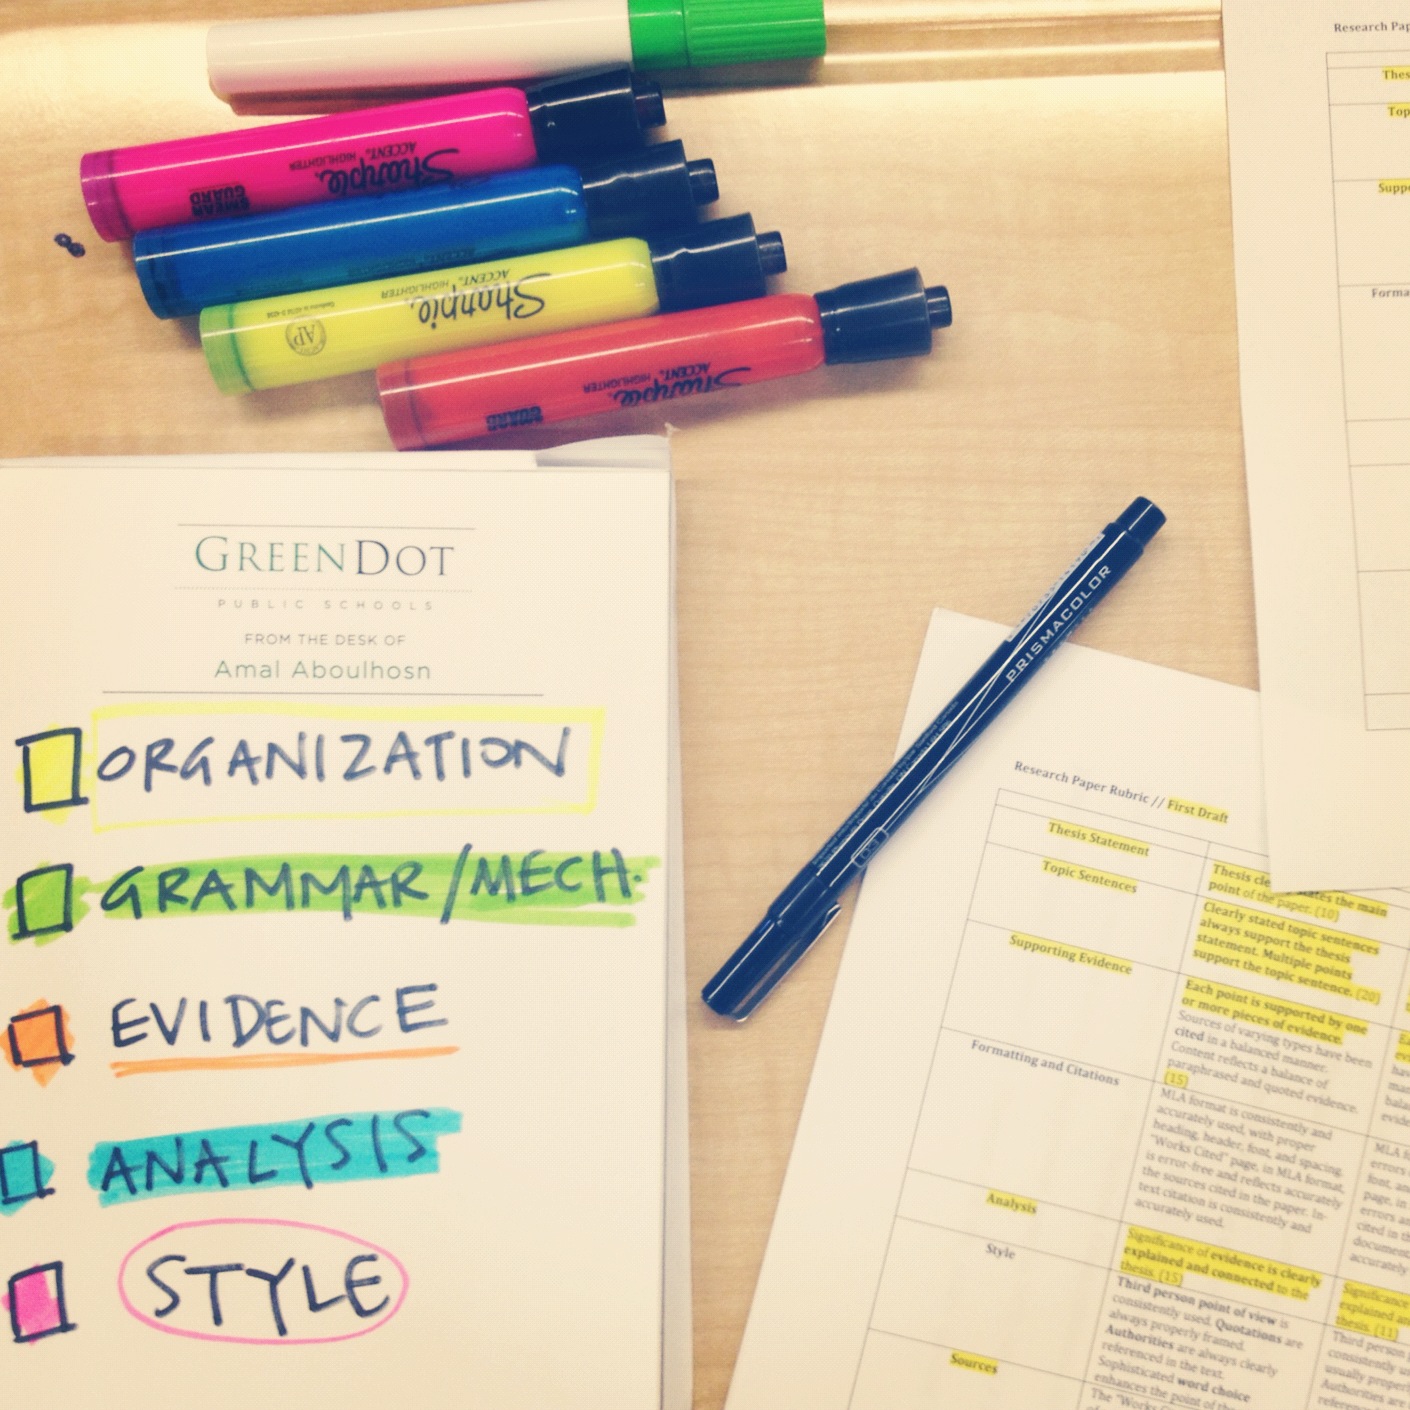 Sharpie.
ACCENT. HIGHLIGHTER
SMEAR GUARD
Sharpie.
ACCENT. HIGHLIGHTER
AP
Sharpie.
ACCENT. HIGHLIGHTER
GUARD
GREENDOT
PUBLIC SCHOOLS
FROM THE DESK OF
Amal Aboulhosn
ORGANIZATION
GRAMMAR/MECH.
EVIDENCE
ANALYSIS
STYLE
PRISMACOLOR
Research Paper Rubric // First Draft
Thesis Statement
the main
point of the paper. (10)
Topic Sentences
Clearly stated topic sentences
always support the thesis
statement. Multiple points
support the topic sentence. (20)
Supporting Evidence
Each point is supported by one
or more pieces of evidence.
Sources of varying types have been
cited in a balanced manner.
Content reflects a balance of
paraphrased and quoted evidence.
(15)
Formatting and Citations
MLA format is consistently and
accurately used, with proper
heading, header, font, and spacing.
"Works Cited" page, in MLA format,
is error-free and reflects accurately
the sources cited in the paper. In-
text citation is consistently and
accurately used.
Analysis
Significance of evidence is clearly
explained and connected to the
thesis. (15)
Significance
explained an
thesis. (11)
Style
Third person point of view is
consistently used. Quotations are
always properly framed.
Authorities are always clearly
referenced in the text.
Sophisticated word choice
enhances the point of the
Third person
consistently
usually
Authorities are
Sources
The "Works
Research